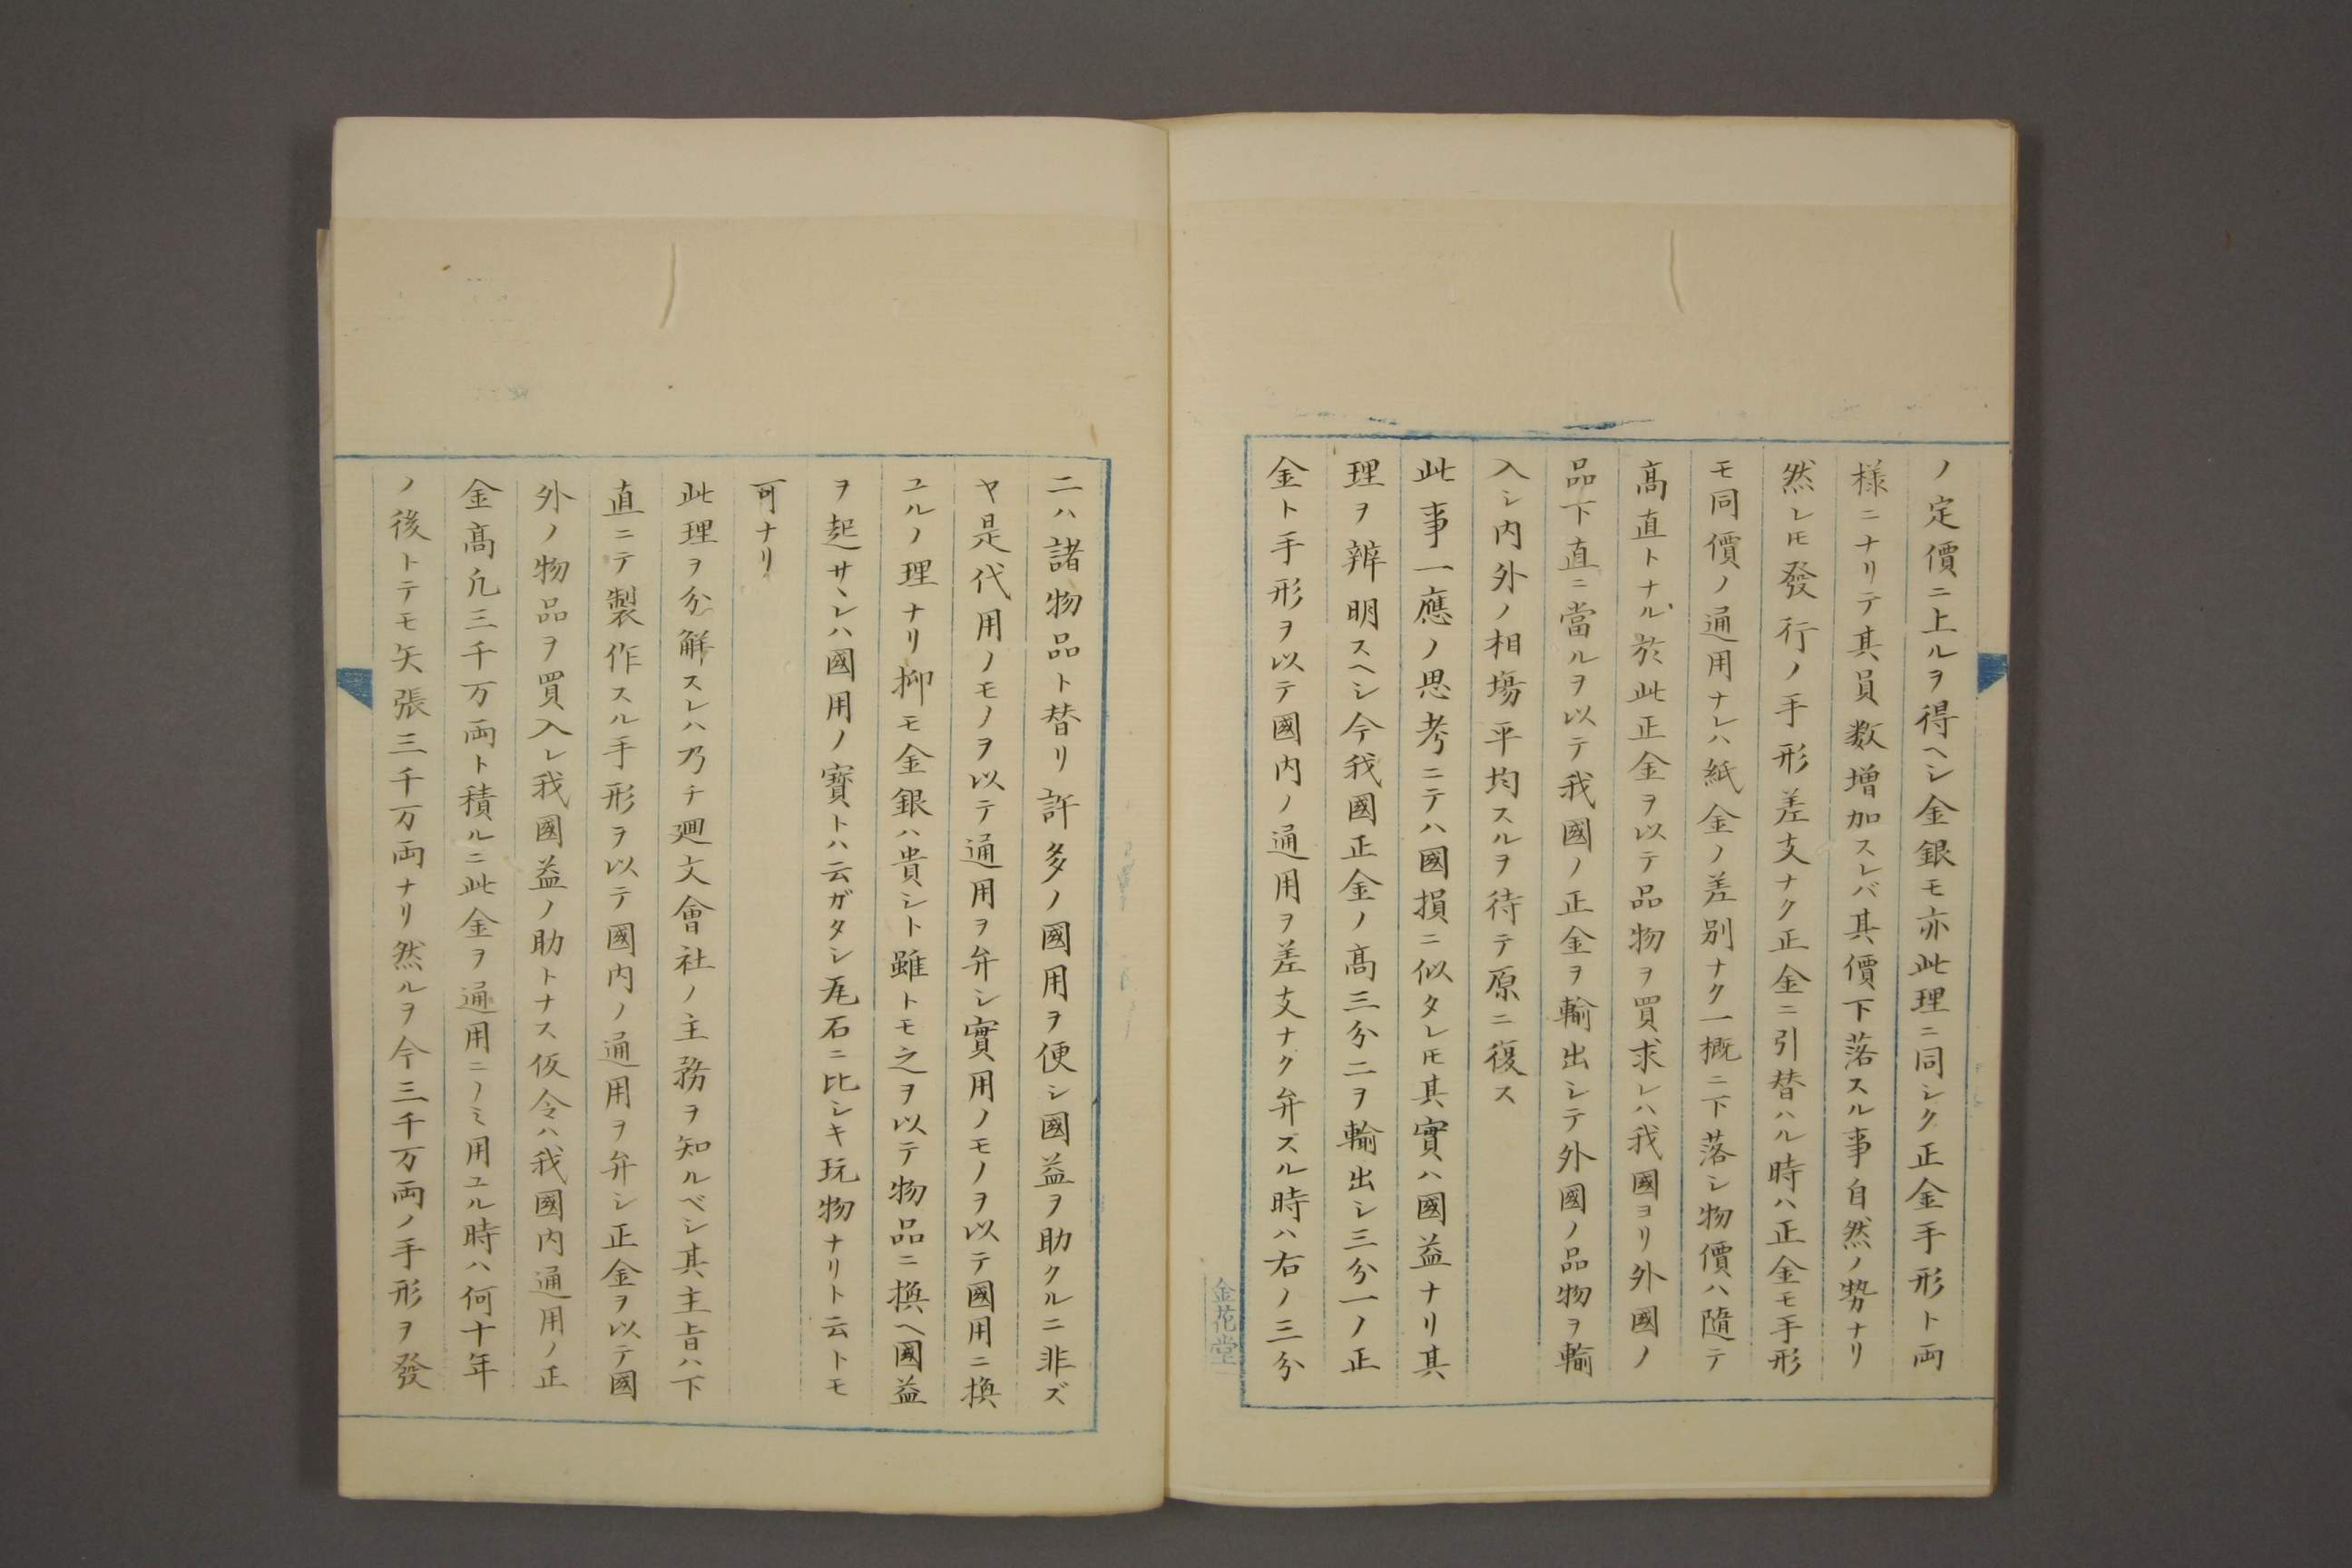 ノ定價ニ上ルヲ得ヘシ金銀モ亦此理ニ同シク正金手形ト両
様ニナリテ其員数増加スレバ其價下落スル事自然ノ勢ナリ
然レ𪜈發行ノ手形差支ナク正金ニ引替ハル時ハ正金モ手形
モ同價ノ通用ナレハ紙金ノ差別ナク一概ニ下落シ物價ハ隨テ
髙直トナル於此正金ヲ以テ品物ヲ買求レハ我國ヨリ外國ノ
品下直ニ當ルヲ以テ我國ノ正金ヲ輸出シテ外國ノ品物ヲ輸
入シ内外ノ相塲平均スルヲ待テ原ニ復ス
此事一應ノ思考ニテハ國損ニ似タレ𪜈其實ハ國益ナリ其
理ヲ辨明スヘシ今我國正金ノ高三分二ヲ輸出シ三分一ノ正
金ト手形ヲ以テ國内ノ通用ヲ差支ナク弁スル時ハ右ノ三分
金花堂
二ハ諸物品ト替リ許多ノ國用ヲ便シ國益ヲ助クルニ非ズ
ヤ是代用ノモノヲ以テ通用ヲ弁シ實用ノモノヲ以テ國用ニ換
ユルノ理ナリ抑モ金銀ハ貴シト雖トモ之ヲ以テ物品ニ換ヘ國益
ヲ起サヽレハ國用ノ寳トハ云ガタシ瓦石ニ比シキ玩物ナリト云トモ
可ナリ
此理ヲ分解スレハ乃チ廻文會社ノ主務ヲ知ルベシ其主旨ハ下
直ニテ製作スル手形ヲ以テ國内ノ通用ヲ弁シ正金ヲ以テ國
外ノ物品ヲ買入レ我國益ノ助トナス仮令ハ我國内通用ノ正
金髙凢三千万両ト積ルニ此金ヲ通用ニノミ用ユル時ハ何十年
ノ後トテモ矢張三千万両ナリ然ルヲ今三千万両ノ手形ヲ發